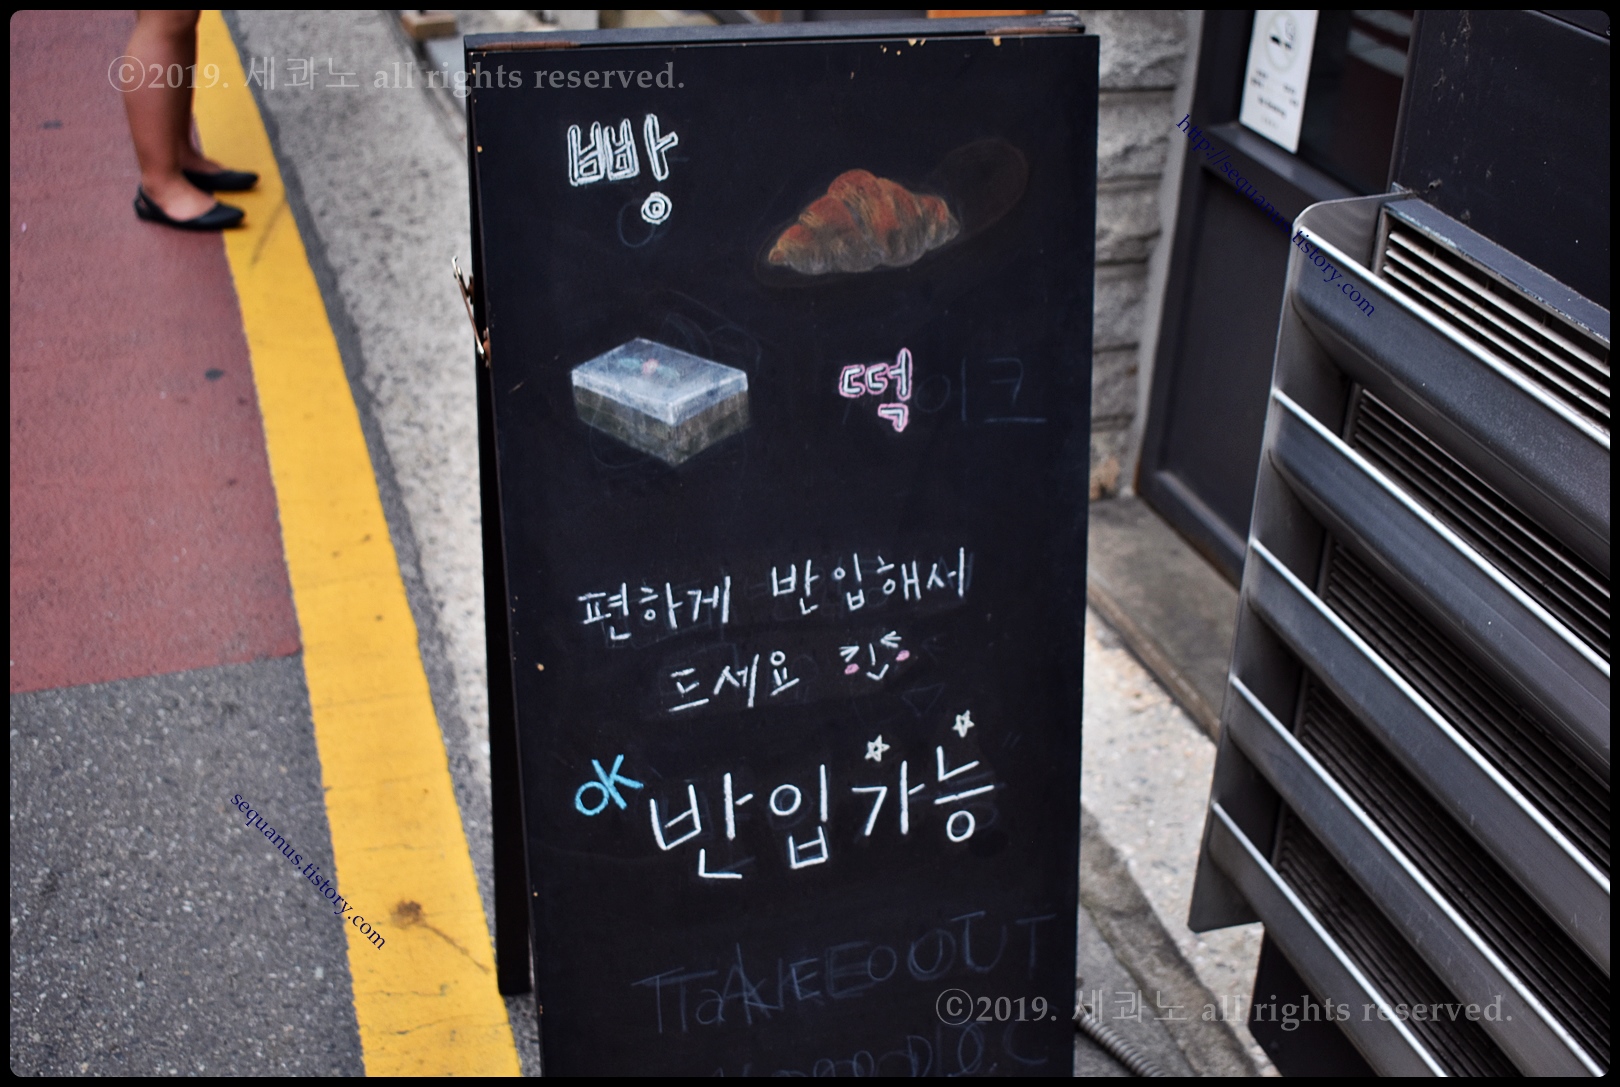 ©2019. 세콰노 all rights reserved.
빵
http://sequanus.tistory.com
떡
이크
편하게 반입해서
드세요
OK 반입가능
sequanus.tistory.com
©2019. 세콰노 all rights reserved.